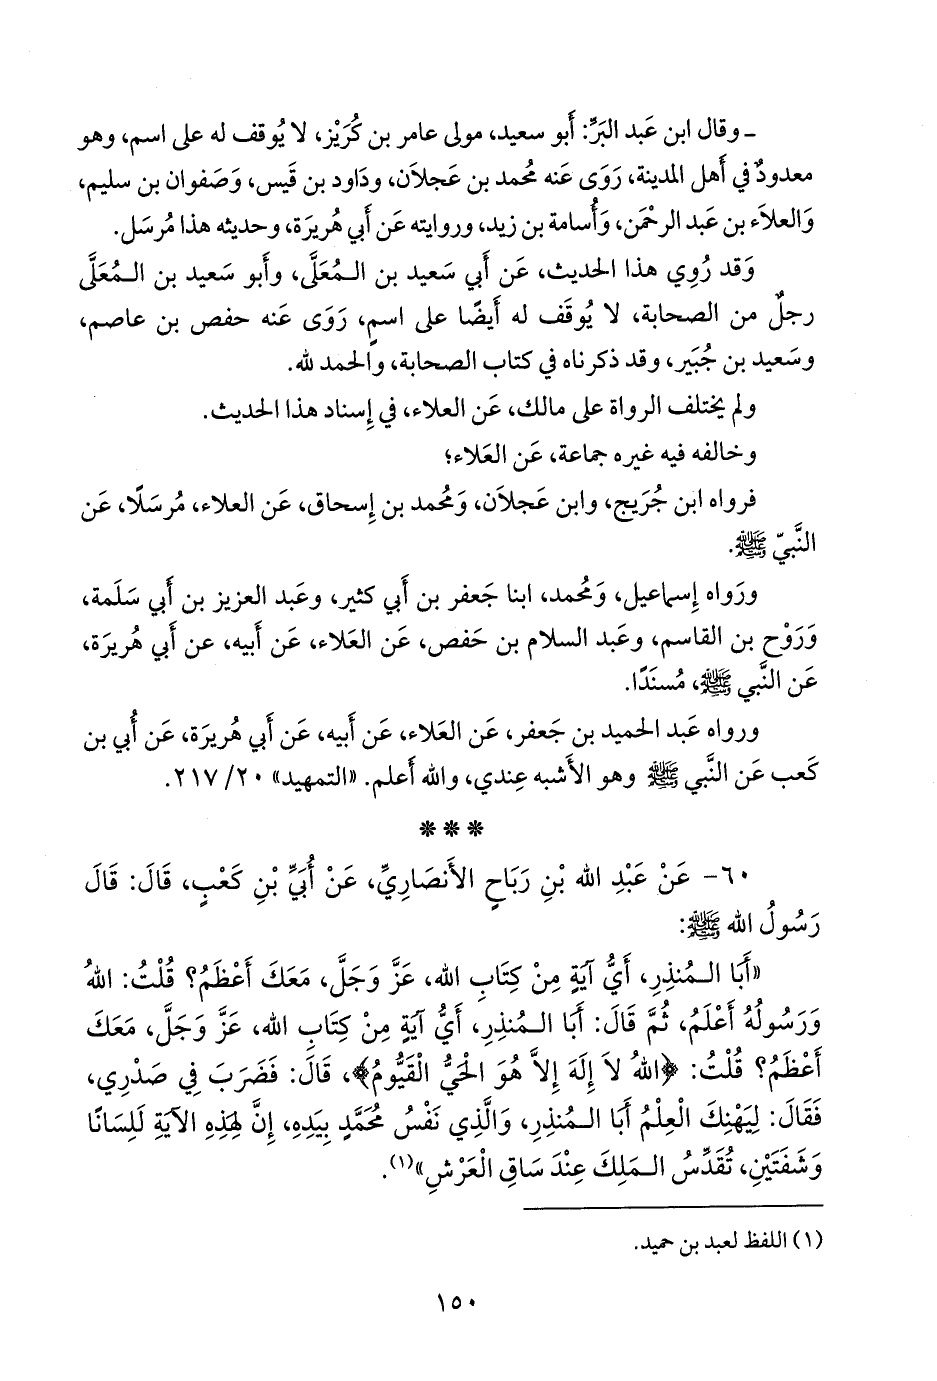 ـ وقال ابن عَبد البَرِّ: أَبو سعيد، مولى عامر بن كُرَيْز، لا يُوقف له على اسم، وهو
معدودٌ في أَهل المدينة، رَوَى عَنه مُحمد بن عَجلاَن، وداود بن قَيس، وَصَفوان بن سليم،
وَالعلاَء بن عَبد الرحْمَن، وَأُسامة بن زيد، وروايته عَن أَبي هُريرَة، وحديثه هذا مُرسَل.
وَقد رُوِي هذا الحديث، عَن أَبي سَعيد بن الـمُعَلَّى، وأَبو سَعيد بن الـمُعَلَّى
رجلٌ من الصحابة، لا يُوقَف له أَيضًا على اسمٍ، رَوَى عَنه حفص بن عاصم،
وسَعيد بن جُبَير، وقد ذكرناه في كتاب الصحابة، والحمد لله.
ولم يختلف الرواة على مالك، عَن العلاء، في إِسناد هذا الحديث.
وخالفه فيه غيره جماعة، عَن العَلاء؛
فرواه ابن جُرَيج، وابن عَجلاَن، وَمُحمد بن إِسحاق، عَن العلاء، مُرسَلًا، عَن
النَّبيّ ﷺ.
ورَواه إِسماعيل، وَمُحمد، ابنا جَعفر بن أَبي كثير، وعَبد العزيز بن أَبي سَلَمة،
وَرَوْح بن القاسم، وعَبد السلام بن حَفص، عَن العَلاء، عَن أَبيه، عن أَبي هُريرَة،
عَن النَّبي ﷺ، مُسنَدًا.
ورواه عَبد الحميد بن جَعفر، عَن العَلاء، عَن أَبيه، عَن أَبي هُريرَة، عَن أُبي بن
كَعب عَن النَّبي ﷺ وهو الأَشبه عِندي، والله أَعلم. «التمهيد» ٢٠/ ٢١٧.
* * *
٦٠- عَنْ عَبْدِ الله بْنِ رَبَاحٍ الأَنصَارِيِّ، عَنْ أُبَيِّ بْنِ كَعْبٍ، قَالَ: قَالَ
رَسُولُ الله ﷺ:
«أَبَا الـمُنذِرِ، أَيُّ آيَةٍ مِنْ كِتَابِ الله، عَزَّ وَجَلَّ، مَعَكَ أَعْظَمُ؟ قُلْتُ: اللهُ
وَرَسُولُهُ أَعْلَمُ، ثُمَّ قَالَ: أَبَا الـمُنذِرِ، أَيُّ آيَةٍ مِنْ كِتَابِ الله، عَزَّ وَجَلَّ، مَعَكَ
أَعْظَمُ؟ قُلْتُ: ﴿اللهُ لَا إِلَهَ إِلاَّ هُوَ الْحَيُّ الْقَيُّومُ﴾، قَالَ: فَضَرَبَ فِي صَدْرِي،
فَقَالَ: لِيَهْنِكَ الْعِلْمُ أَبَا الـمُنذِرِ، وَالَّذِي نَفْسُ مُحَمَّدٍ بِيَدِهِ، إِنَّ لِهَذِهِ الآيَةِ لَلِسَانًا
وَشَفَتَيْنِ، تُقَدِّسُ الـمَلِكَ عِنْدَ سَاقِ الْعَرْشِ»(١).
(١) اللفظ لعبد بن حميد.
١٥٠